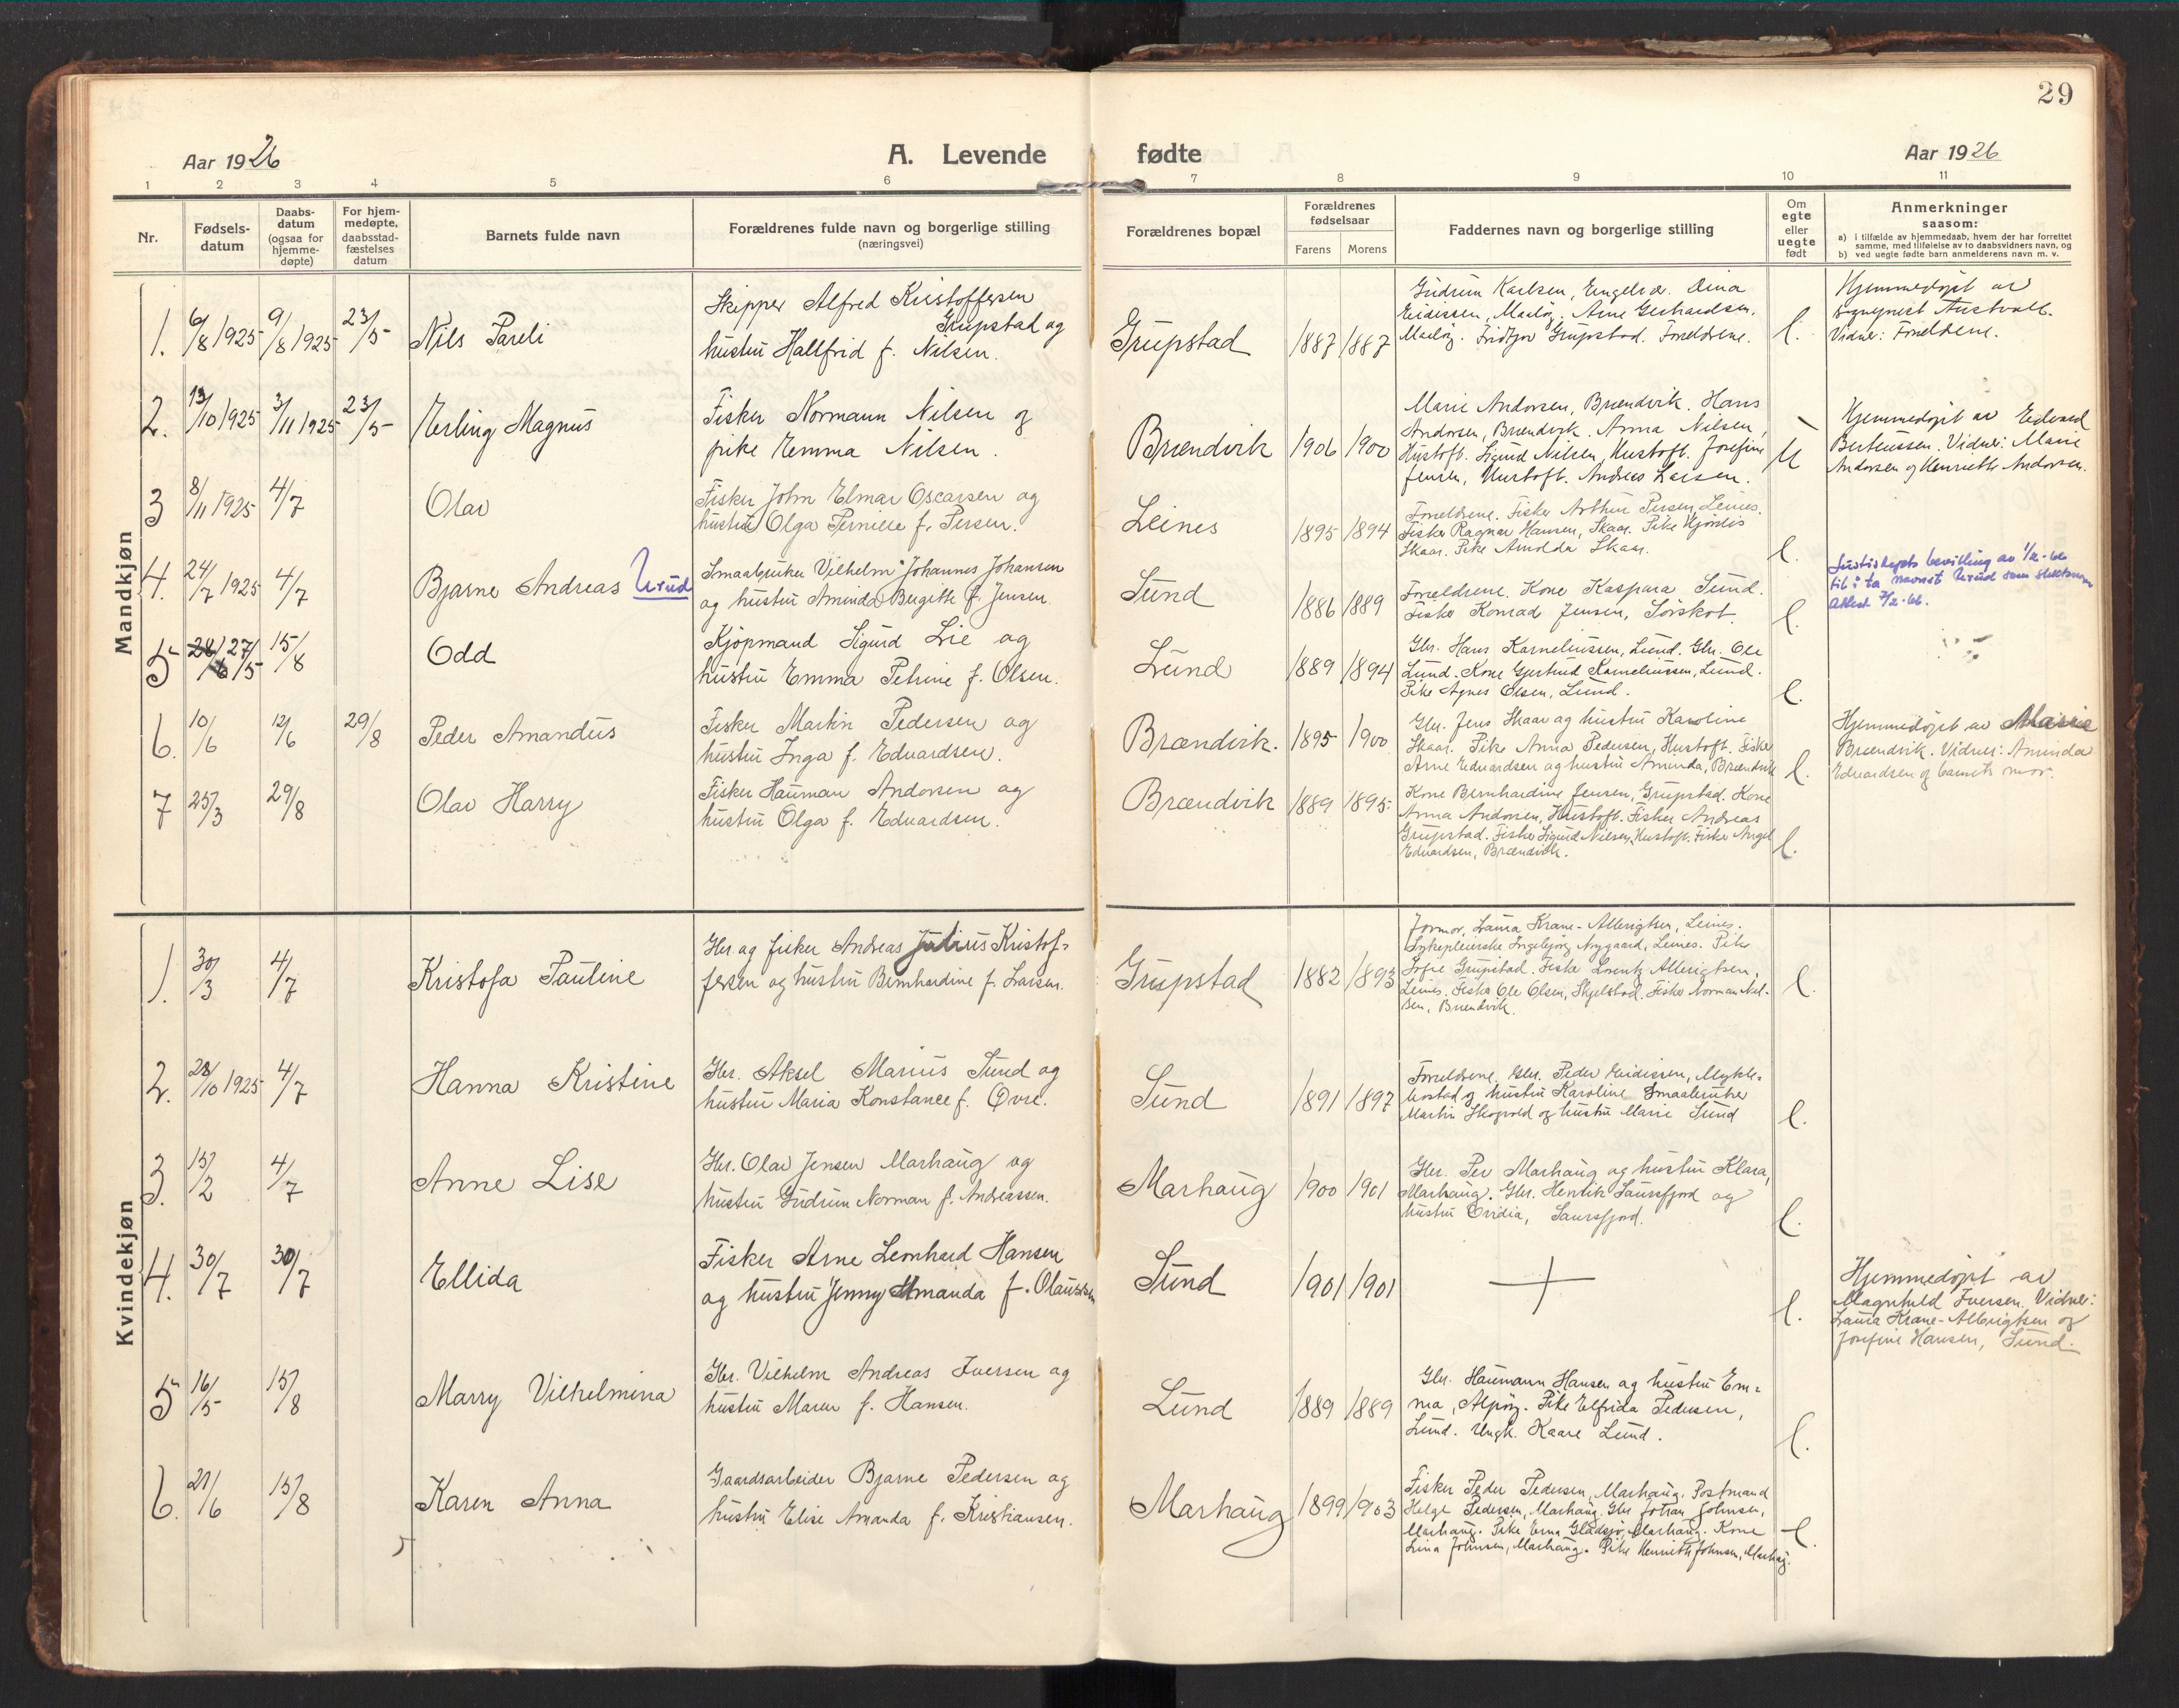 29
Aar 1926
A. Levende
fødte
Aar 1926
1 2 3 4 5 6 7 8 9 10 11
Nr.
Fødsels-
datum
Daabs-
datum
(ogsaa for
hjemme-
døpte)
For hjem-
medøpte,
daabsstad-
fæstelses
datum
Barnets fulde navn
Forældrenes fulde navn og borgerlige stilling
(næringsvei)
Forældrenes bopæl
Forældrenes
fødselsaar
Farens
Morens
Faddernes navn og borgerlige stilling
Om
egte
eller
uegte
født
Anmerkninger
saasom:
a) i tilfælde av hjemmedaab, hvem der har forrettet
samme, med tilføielse av to daabsvidners navn, og
b) ved uegte fødte barn anmelderens navn m. v.
Mandkjøn
1. 6/8 1925 9/8 1925 23/5 Nils Pareli
Skipper Alfred Kristoffersen
Grupstad og
hustru Hallfrid f. Nilsen.
Grupstad 1887 1887
Gudrun Karlsen, Engelvær. Dina
Eidissen, Maaløy. Arne Gerhardsen,
Maaløy. Fridtjov Grupstad. Forældrene.
e.
Hjemmedøpt av
sogneprest Austvoll.
Vidner: Forældrene.
2. 13/10 1925 3/11 1925 23/5 Erling Magnus
Fisker Normann Nilsen og
pike Emma Nilsen.
Brændvik 1906 1900
Marie Andorsen, Brændvik. Hans
Andorsen, Brændvik. Anna Nilsen,
Hustoft. Sigurd Nilsen, Hustoft. Josefine
Jensen, Hustoft. Andreas Larsen.
U
Hjemmedøpt av Edvard
Berteussen. Vidner: Marie
Andorsen og Henriette Andorsen.
3 8/11 1925 4/7 Olav
Fisker John Elmar Oscarsen og
hustru Olga Pernille f. Persen.
Leines 1895 1894
Forældrene. Fisker Arthur Persen, Leines.
Fisker Ragnar Hansen, Skaar. Pike Hjørdis
Skaar. Pike Arnolda Skaar.
e.
4. 24/7 1925 4/7 Bjarne Andreas Urud
Smaabruker Vilhelm Johannes Johansen
og hustru Amanda Bergitte f. Jensen.
Sund 1886 1889
Forældrene. Kone Kaspara Sund.
Fisker Konrad Jensen, Sørskot.
e.
Justisdepts bevilling av 1/2-66
til å ta navnet Urud som slektsnavn
Attest 7/2-66.
5 28/6 27/5 15/8 Odd
Kjøpmand Sigurd Lie og
hustru Emma Petrine f. Olsen.
Lund 1889 1894
Gbr. Hans Korneliussen, Lund. Gbr. Ole
Lund. Kone Gjertrud Korneliussen, Lund.
Pike Agnes Olsen, Lund.
e.
6. 10/6 12/6 29/8 Peder Amandus
Fisker Martin Pedersen og
hustru Inga f. Edvardsen.
Brændvik. 1895 1900
Gbr. Jens Skaar og hustru Karoline
Skaar. Pike Anna Pedersen, Hustoft. Fisker
Arne Edvardsen og hustru Amanda, Brændvik
e.
Hjemmedøpt av Marie
Brændvik. Vidner: Amanda
Edvardsen og barnets mor.
7 25/3 29/8 Olav Harry
Fisker Hauman Andorsen og
hustru Olga f. Edvardsen.
Brændvik 1889 1895
Kone Bernhardine Jensen, Grupstad. Kone
Anna Andorsen, Hustoft. Fisker Andreas
Grupstad. Fisker Sigurd Nilsen, Hustoft. Fisker Angel
Edvardsen, Brændvik.
e.
Kvindekjøn
1. 30/3 4/7 Kristofa Pauline
Gbr og fisker Andreas Julius Kristof-
fersen og hustru Bernhardine f. Larsen.
Grupstad 1882 1893
Jormor Laura Krane-Albrigtsen, Leines.
Sykepleierske Ingebjørg Nygaard, Leines. Pike
Sofie Grupstad. Fisker Lorentz Albrigtsen,
Leines. Fisker Ole Olsen, Skjelstad. Fisker Norman Nil-
sen, Brændvik.
e.
2. 28/10 1925 4/7 Hanna Kristine
Gbr. Aksel Marius Sund og
hustru Maria Konstance f. Øvre.
Sund 1891 1897
Forældrene. Gbr. Peder Eidissen, Mykle-
bostad og hustru Karoline. Smaabruker
Martin Skogvold og hustru Marie Sund
e.
3. 15/2 4/7 Anne Lise
Gbr. Olav Jensen Marhaug og
hustru Gudrun Norman f. Andreassen.
Marhaug 1900 1901
Gbr. Per Marhaug og hustru Klara,
Marhaug. Gbr. Henrik Saursfjord og
hustru Ovidia, Saursfjord.
e.
4. 30/7 30/7 Ellida
Fisker Arne Leonhard Hansen
og hustru Jenny Amanda f. Olaussen
Sund 1901 1901
e.
Hjemmedøpt av
Magnhild Iversen. Vidner:
Laura Krane-Albrigtsen og
Josefine Hansen, Sund.
5 16/5 15/8 Marry Vilhelmina
Gbr. Vilhelm Andreas Iversen og
hustru Maren f. Hansen.
Lund 1889 1889
Gbr. Haumann Hansen og hustru Em-
ma, Alpøy. Pike Elfrida Pedersen,
Lund. Ungk. Kaare Lund.
e.
6. 21/6 15/8 Karen Anna
Gaardsarbeider Bjarne Pedersen og
hustru Elise Amanda f. Kristiansen.
Marhaug 1899 1903
Fisker Peder Pedersen, Marhaug. Postmand
Helge Pedersen, Marhaug. Gbr Johan Johnsen,
Marhaug. Pike Erna Gladsjø, Marhaug. Kone
Lina Johnsen, Marhaug. Pike Henriette Johnsen, Marhaug.
e.